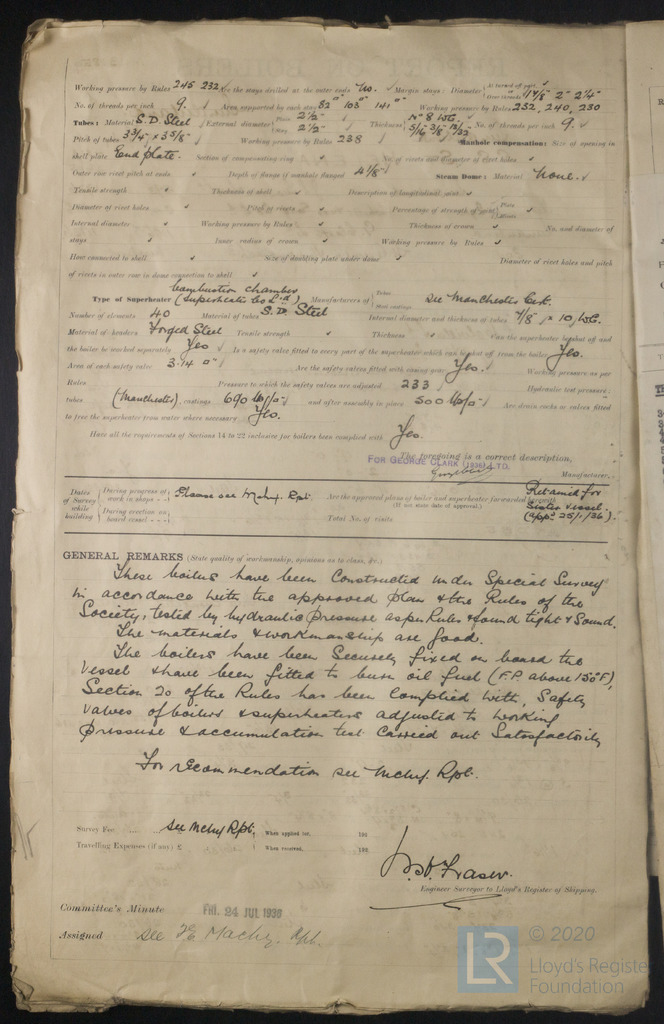 Working pressure by Rules 245 232 Are the stays drilled at the outer ends No. Margin stays: Diameter { At turned off part, or Over threads 1 7/8" 2" 2 1/4"
No. of threads per inch 9. Area supported by each stay 82" 103" 141" Working pressure by Rules 232, 240, 230
Tubes: Material S.D. Steel External diameter { Plain 2 1/2" Stay 2 1/2" Thickness { 8 WG. 5/16 3/8 13/32 No. of threads per inch 9.
Pitch of tubes 3 3/4" x 3 5/8" Working pressure by Rules 238 Manhole compensation: Size of opening in
shell plate End plate. Section of compensating ring No. of rivets and diameter of rivet holes
Outer row rivet pitch at ends Depth of flange if manhole flanged 4 1/8" Steam Dome: Material None.
Tensile strength Thickness of shell Description of longitudinal joint
Diameter of rivet holes Pitch of rivets Percentage of strength of joint { Plate Rivets
Internal diameter Working pressure by Rules Thickness of crown No. and diameter of
stays Inner radius of crown Working pressure by Rules
How connected to shell Size of doubling plate under dome Diameter of rivet holes and pitch
of rivets in outer row in dome connection to shell
Combustion Chamber
Type of Superheater (Superheater Co Ltd) Manufacturers of { Tubes Steel castings See Manchester Cert.
Number of elements 40 Material of tubes S.D. Steel Internal diameter and thickness of tubes 7/8" x 10 WG.
Material of headers Forged Steel Tensile strength Thickness Can the superheater be shut off and
the boiler be worked separately Yes Is a safety valve fitted to every part of the superheater which can be shut off from the boiler Yes.
Area of each safety valve 3.14 □" Are the safety valves fitted with easing gear Yes. Working pressure as per
Rules Pressure to which the safety valves are adjusted 233 Hydraulic test pressure:
tubes (Manchester), castings 690 lb/□" and after assembly in place 500 lb/□" Are drain cocks or valves fitted
to free the superheater from water where necessary Yes.
Have all the requirements of Sections 14 to 22 inclusive for boilers been complied with Yes.
The foregoing is a correct description,
FOR GEORGE CLARK (1938) LTD.
Manufacturer.
Dates of Survey while building { During progress of work in shops - - Please see Mchy. Rpt. Are the approved plans of boiler and superheater forwarded herewith Retained for
(If not state date of approval.) Sister vessel.
During erection on board vessel - - - Total No. of visits (appd 25/1/36)
GENERAL REMARKS (State quality of workmanship, opinions as to class, &c.)
These boilers have been Constructed under Special Survey
in accordance with the approved plan & the Rules of the
Society, tested by hydraulic pressure as per Rules & found tight & Sound.
The materials & workmanship are good.
The boilers have been Securely fixed on board the
Vessel & have been fitted to burn oil fuel (F.P. above 150°F),
Section 20 of the Rules has been Complied with, Safety
valves of boilers & superheaters adjusted to working
pressure & accumulation test Carried out Satisfactorily
For recommendation see Mchy. Rpt.
Survey Fee See Mchy Rpt. When applied for, 193
Travelling Expenses (if any) £ When received, 193
Fraser.
Engineer Surveyor to Lloyd's Register of Shipping.
Committee's Minute FRI. 24 JUL 1936
Assigned See F.E. Machy. Rpt.
LR © 2020
Lloyd's Registe
Foundation